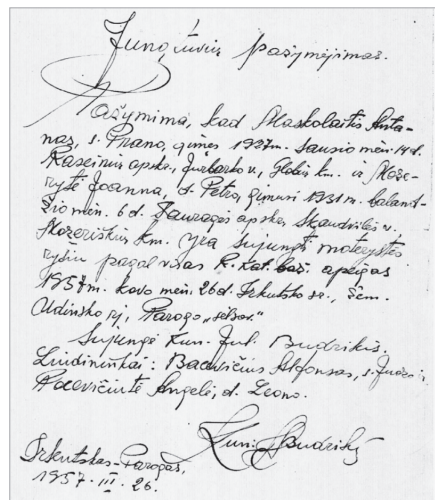 Jungtuvių pažymėjimas.
Pažymima, kad Maskolaitis Anta-
nas, s. Prano, gimęs 1927m. sausio mėn. 14 d.
Raseinių apskr., Jurbarko v., Globių km. ir Može-
rytė Joanna, d. Petro, gimusi 1931 m. baland-
žio mėn. 6 d. Tauragės apskr. Skaudvilės v.,
Možeriškių km. yra sujungti moterystės
ryšiu pagal visas R. Kat. baž. apeigas
1957m. kovo mėn. 26d. Irkutsko sr.,
Udinsko rj,
Sujungė Kun. Jul. Budrikis,
Liudininkai: Bacevičius Alfonsas, s. Juozo ir
Racevičiutė Angelė, d. Leono.
Kun. JBudrikis
Irkutskas-Parogas,
1957-III-26.